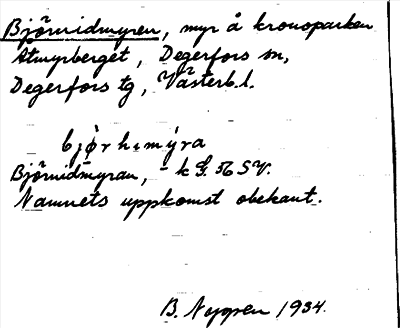 Björnidmyren, myr å kronoparken
Åtmyrberget, Degerfors sn,
Degerfors tg, Västerb.l.
bjørhₑmýra
Björnidmyran, - k G. 56 SV.
Namnets uppkomst obekant.
B. Nygren 1934.